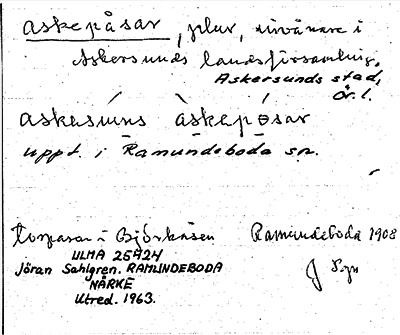 askepåsar, plur, invånare i
Askersunds landsförsamling,
Askersunds stad,
Ör. l.
askasúns àskepósar
uppt. i Ramundeboda sn.
torparen i Björkåsen Ramundeboda 1908
ULMA 25424
Jöran Sahlgren. RAMUNDEBODA
NÄRKE
Utred. 1963.
J Sgn